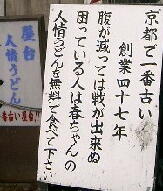 京都で一番古い
創業四十七年
腹が減っては戦が出来ぬ
困っている人は春ちゃんの
人情うどんを無料で食べて下さい
屋台
人情うどん
一番古い屋台!!